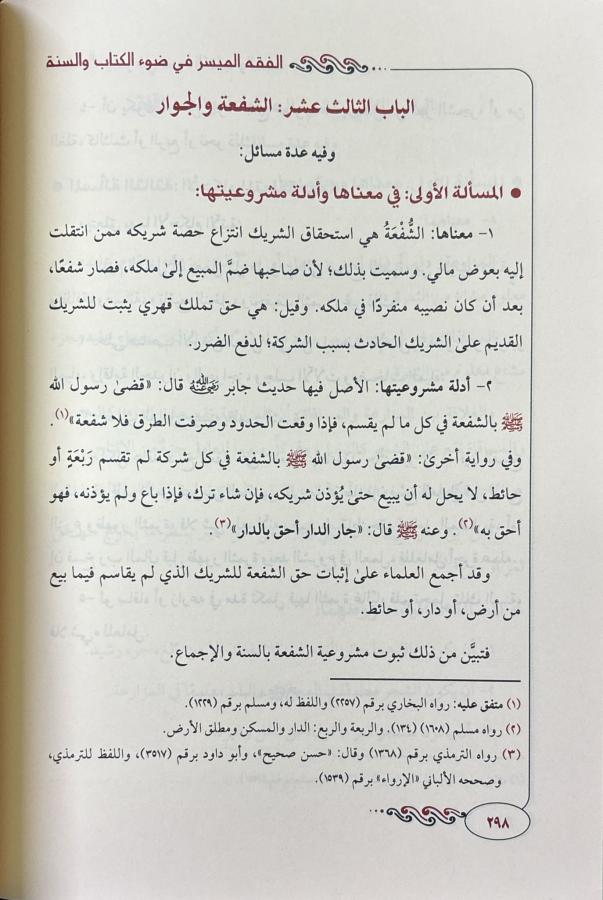 الفقه الميسر في ضوء الكتاب والسنة
الباب الثالث عشر: الشفعة والجوار
وفيه عدة مسائل:
• المسألة الأولى: في معناها وأدلة مشروعيتها:
١- معناها: الشُّفْعَةُ هي استحقاق الشريك انتزاع حصة شريكه ممن انتقلت
إليه بعوض مالي. وسميت بذلك؛ لأن صاحبها ضمَّ المبيع إلى ملكه، فصار شفعًا،
بعد أن كان نصيبه منفردًا في ملكه. وقيل: هي حق تملك قهري يثبت للشريك
القديم على الشريك الحادث بسبب الشركة؛ لدفع الضرر.
٢- أدلة مشروعيتها: الأصل فيها حديث جابر رضي الله عنه قال: «قضى رسول الله
ﷺ بالشفعة في كل ما لم يقسم، فإذا وقعت الحدود وصرفت الطرق فلا شفعة»(١).
وفي رواية أخرى: «قضى رسول الله ﷺ بالشفعة في كل شركة لم تقسم رَبْعَةٍ أو
حائط، لا يحل له أن يبيع حتى يُؤذن شريكه، فإن شاء ترك، فإذا باع ولم يؤذنه، فهو
أحق به»(٢). وعنه ﷺ قال: «جار الدار أحق بالدار»(٣).
وقد أجمع العلماء على إثبات حق الشفعة للشريك الذي لم يقاسم فيما بيع
من أرض، أو دار، أو حائط.
فتبيَّن من ذلك ثبوت مشروعية الشفعة بالسنة والإجماع.
(١) متفق عليه: رواه البخاري برقم (٢٢٥٧) واللفظ له، ومسلم برقم (١٢٢٩).
(٢) رواه مسلم (١٦٠٨) (١٣٤). والربعة والربع: الدار والمسكن ومطلق الأرض.
(٣) رواه الترمذي برقم (١٣٦٨) وقال: «حسن صحيح»، وأبو داود برقم (٣٥١٧)، واللفظ للترمذي،
وصححه الألباني «الإرواء» برقم (١٥٣٩).
٢٩٨